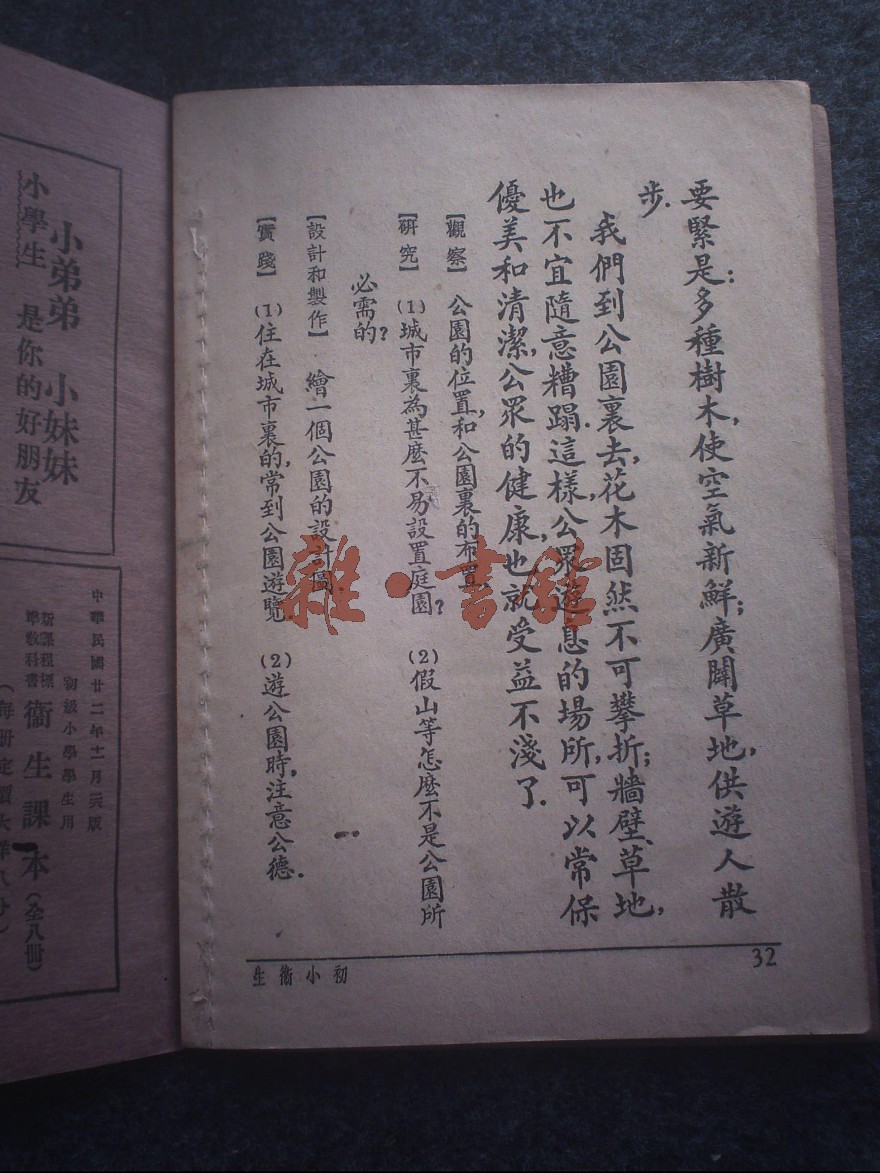 要緊是:多種樹木,使空氣新鮮;廣闢草地,供遊人散
步.
我們到公園裏去,花木固然不可攀折;牆壁、草地,
也不宜隨意糟蹋.這樣,公眾遊息的場所,可以常保
優美和清潔,公眾的健康,也就受益不淺了.
【觀察】 公園的位置,和公園裏的布置.
【研究】 (1)城市裏為甚麼不易設置庭園? (2)假山等怎麼不是公園所
必需的?
【設計和製作】 繪一個公園的設計圖.
【實踐】 (1)住在城市裏的,常到公園遊覽. (2)遊公園時,注意公德.
32
初小衛生
雜·書館
小弟弟 小妹妹
小學生 是你的好朋友
中華民國廿二年十一月六版
初級小學學生用
新課程標
準教科書 衞生課本(全八冊)